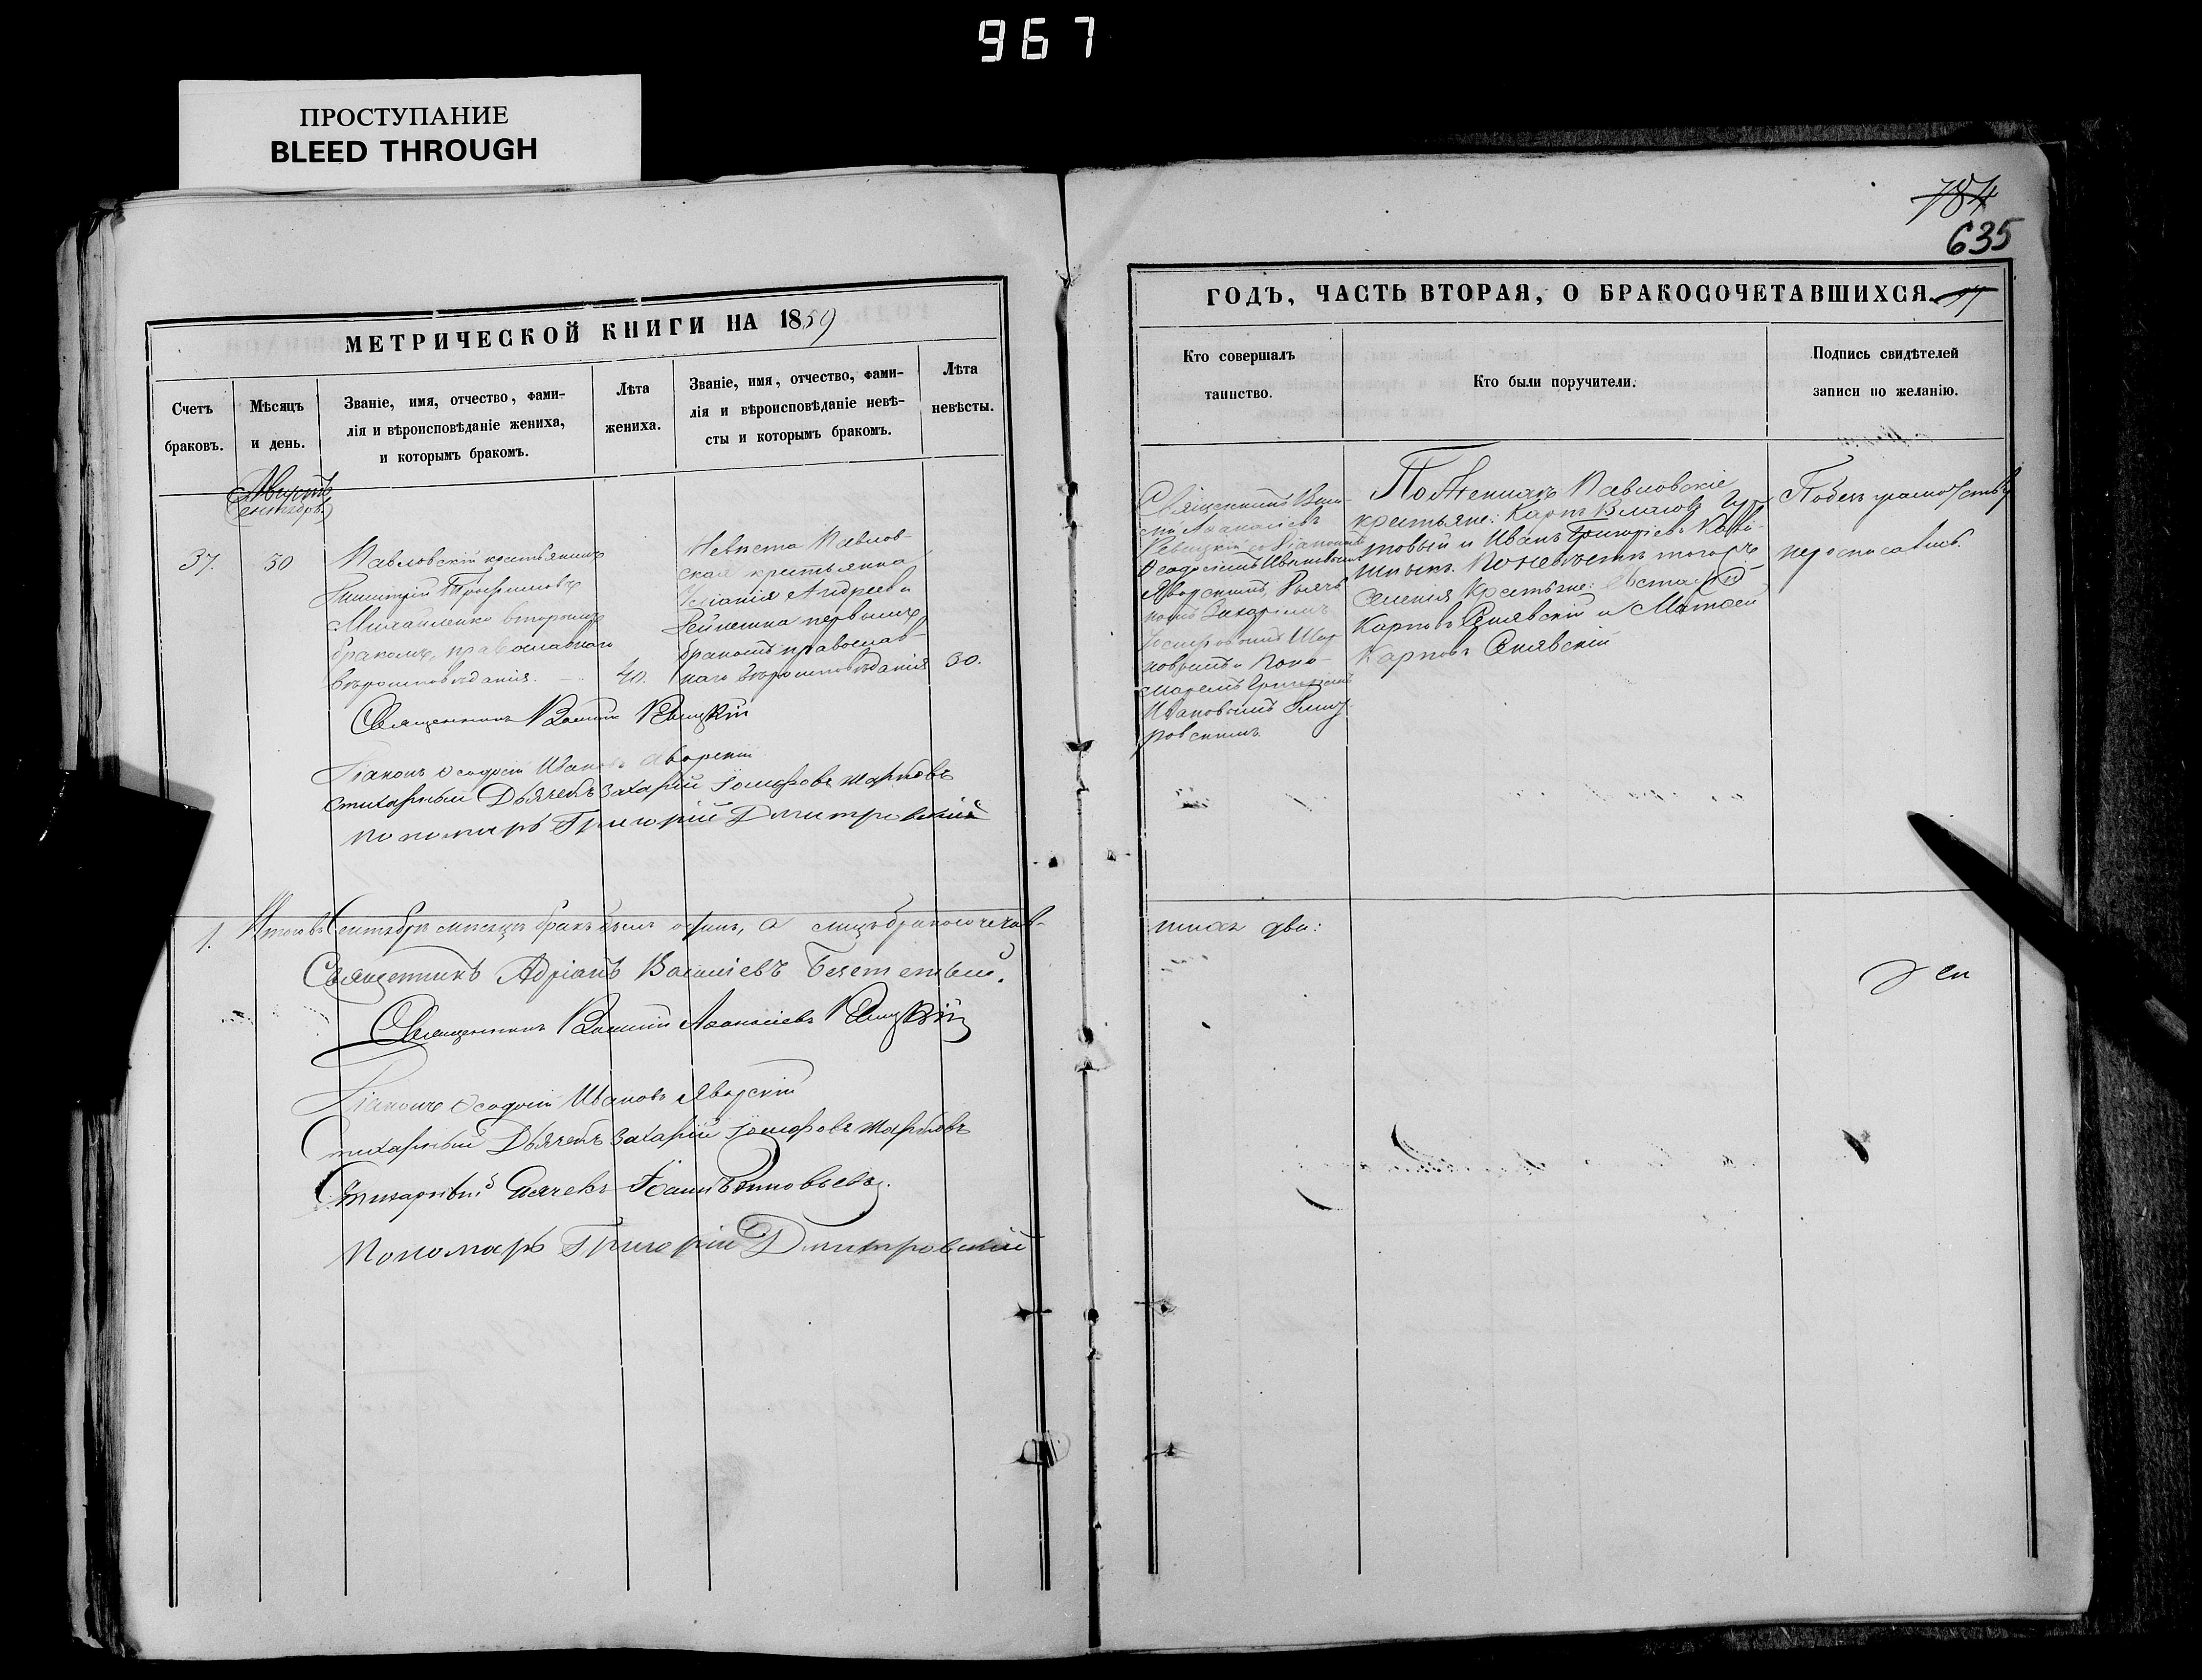 967
ПРОСТУПАНИЕ
BLEED THROUGH
784
635
МЕТРИЧЕСКОЙ КНИГИ НА 1859
Счетъ
браковъ.
Мѣсяцъ
и день.
Званіе, имя, отчество, фами-
лія и вѣроисповѣданіе жениха,
и которымъ бракомъ.
Лѣта
жениха.
Званіе, имя, отчество, фами-
лія и вѣроисповѣданіе невѣ-
сты и которымъ бракомъ.
Лѣта
невѣсты.
Августъ
Сентябрь
37.
30
Павловскій крестьянинъ
Димитрій Трофимовъ
Михайленко вторымъ
бракомъ, православнаго
вѣроисповѣданія.
40.
Невѣста Павлов-
ская крестьянка
Андреева
первымъ
бракомъ православ-
наго вѣроисповѣданія
30.
Священникъ Василій Ревицкій
Діаконъ Ѳеодосій Ивановъ Яворскій
Стихарный Дьячекъ Захарій Іосифовъ Марковъ
Пономарь Григорій Дмитровскій
1.
Итого въ Сентябрѣ мѣсяцѣ бракъ былъ одинъ, а лицъ бракосочетав-
Священникъ Адріанъ Василіевъ
Священникъ Василій Аѳанасіевъ Ревицкій
Діаконъ Ѳеодосій Ивановъ Яворскій
Стихарный Дьячекъ Захарій Іосифовъ Марковъ
Стихарный Дьячекъ
Пономарь Григорій Дмитровскій
ГОДЪ, ЧАСТЬ ВТОРАЯ, О БРАКОСОЧЕТАВШИХСЯ.
Кто совершалъ
таинство.
Кто были поручители.
Подпись свидѣтелей
записи по желанію.
Священникъ Васи-
лій Аѳанасіевъ
Ревицкій съ Діакономъ
Ѳеодосіемъ Ивановымъ
Яворскимъ, Дьяч-
комъ Захаріемъ
Іосифовымъ Мар-
ковымъ и Поно-
маремъ Григоріемъ
Ивановымъ Дмит-
ровскимъ.
По Женихѣ Павловскіе
крестьяне: Карпъ Власовъ
и Иванъ Григоріевъ
По Невѣстѣ тогожъ
селенія крестьяне:
Карповъ Синявскій и Матѳей
Карповъ Синявскій
шихся два: